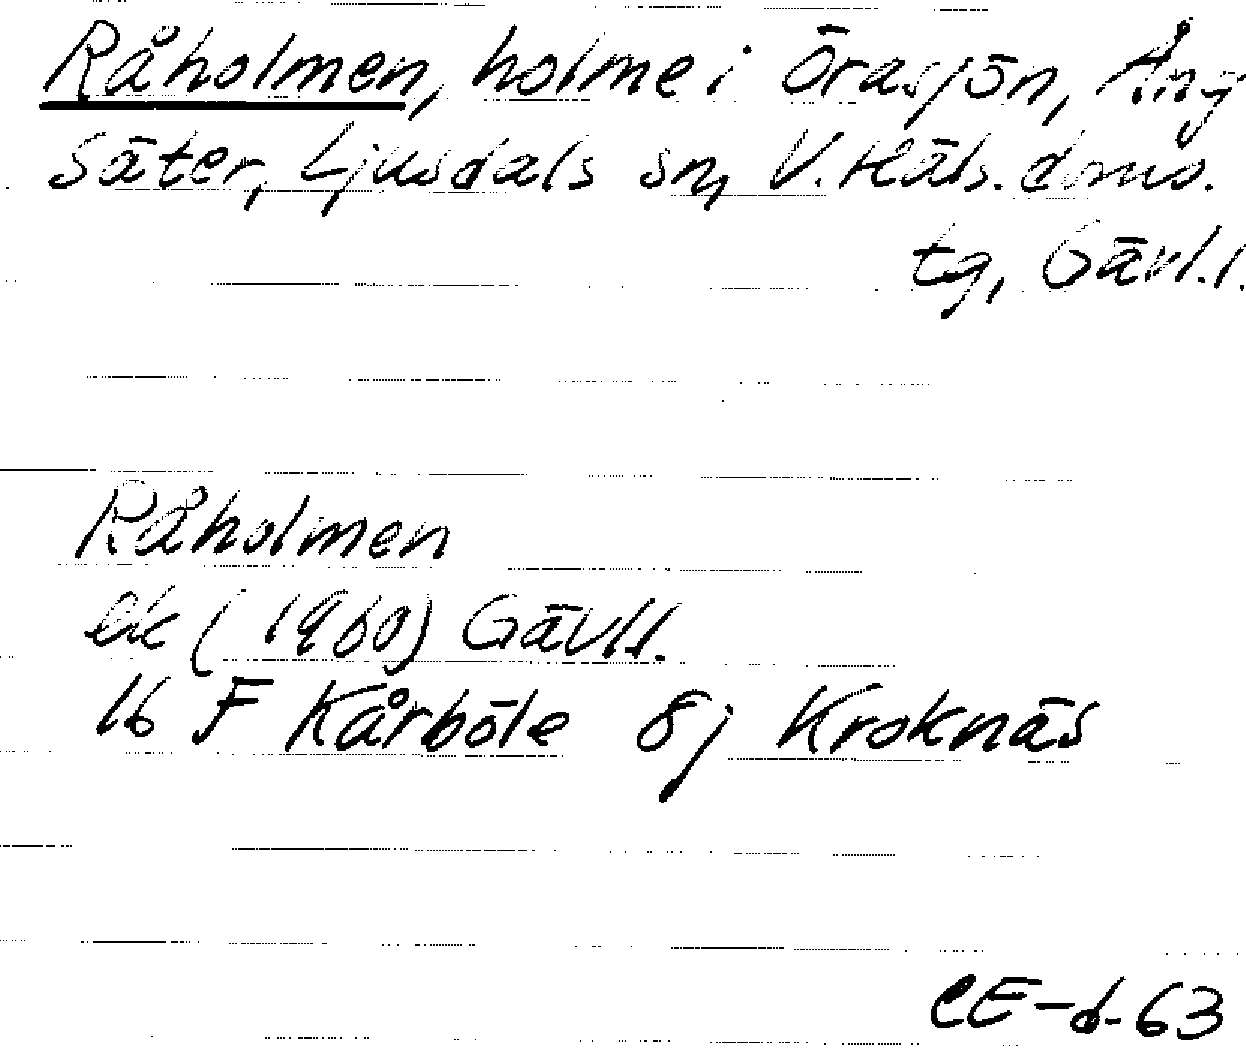 Råholmen, holme i Örasjön, Äng
säter, Ljusdals sn, V. Häls. doms.
tg, Gävl.l.
Råholmen
ek (1960) Gävl.l.
16 F Kårböle 8j Kroknäs
CE-d-63